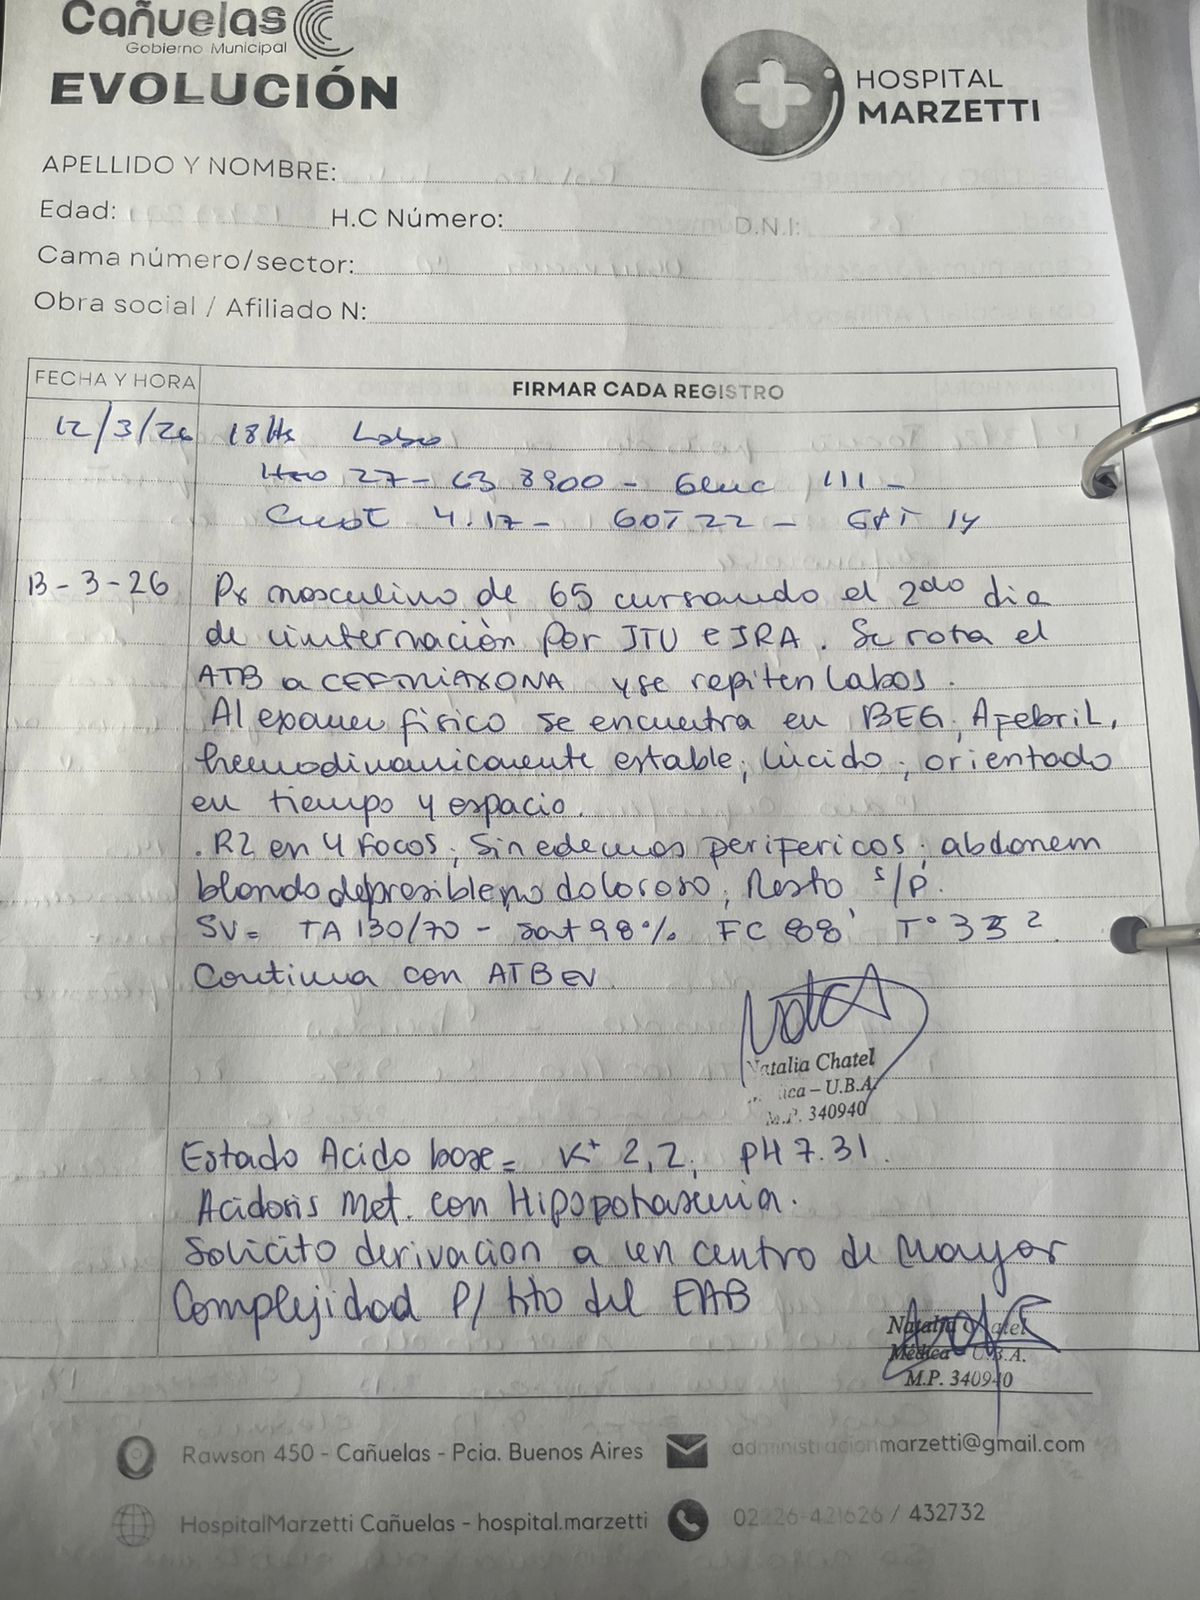 Cañuelas
Gobierno Municipal
EVOLUCIÓN
HOSPITAL
MARZETTI
APELLIDO Y NOMBRE:
Edad: H.C Número: D.N.I:
Cama número/sector:
Obra social / Afiliado N:
FECHA Y HORA FIRMAR CADA REGISTRO
12/3/26 18Hs Labo
Hto 27 - GB 8900 - Gluc 111 -
Creat 4.17 - GOT 22 - GPT 14
13-3-26 Px masculino de 65 cursando el 2do dia
de internación por ITU e IRA. Se rota el
ATB a CEFTRIAXONA y se repiten Labos.
Al examen físico se encuentra en BEG, Afebril,
hemodinamicamente estable, lúcido, orientado
en tiempo y espacio.
. R2 en 4 Focos, Sin edemas perifericos, abdomen
blando depresible no doloroso, Resto s/p.
SV= TA 130/70 - Sat 98% FC 88' T°
Continua con ATB EV.
Natalia Chatel
U.B.A.
M.P. 340940
Estado Acido base = K+ 2,2, PH 7.31.
Acidosis Met. con Hipopotasemia.
Solicito derivacion a un centro de mayor
Complejidad P/ tto del EAB
Natalia Chatel
Médica U.B.A.
M.P. 340940
Rawson 450 - Cañuelas - Pcia. Buenos Aires
administracionmarzetti@gmail.com
HospitalMarzetti Cañuelas - hospital.marzetti
02226-421626 / 432732